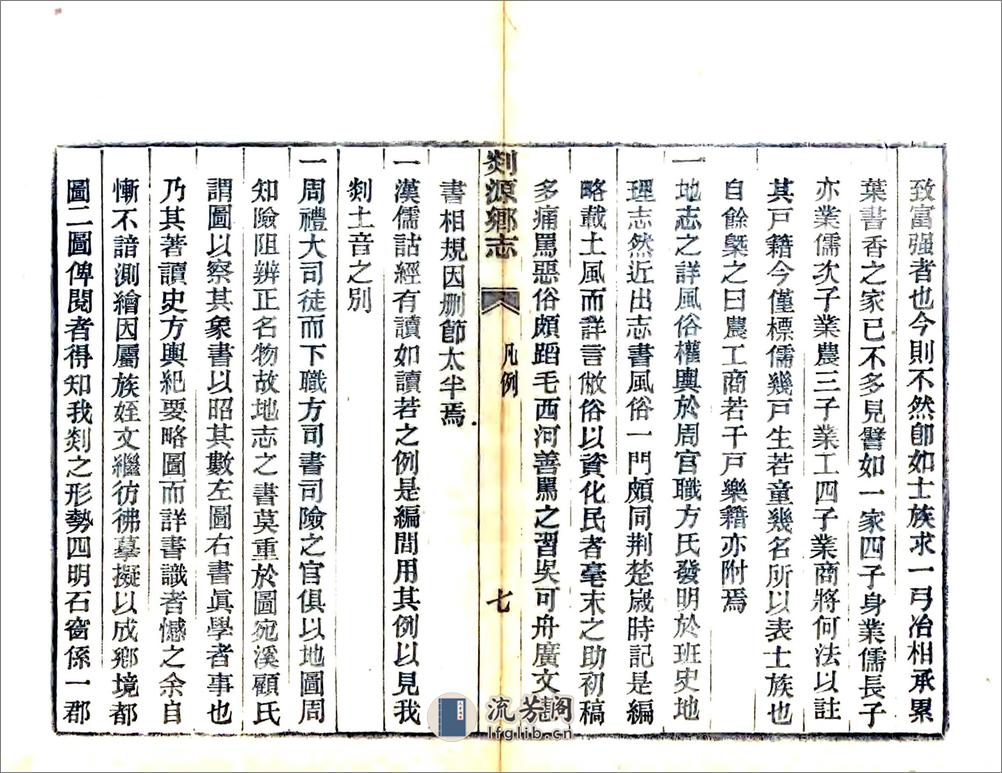 致富强者也今則不然卽如士族求一弓冶相承累
葉書香之家已不多見譬如一家四子身業儒長子
亦業儒次子業農三子業工四子業商將何法以註
其戸籍今僅標儒幾戸生若童幾名所以表士族也
自餘槩之曰農工商若干戸樂籍亦附焉
一地志之詳風俗權輿於周官職方氏發明於班史地
理志然近出志書風俗一門頗同荆楚歲時記是編
略載土風而詳言敝俗以資化民者毫末之助初稿
多痛罵惡俗頗蹈毛西河善罵之習吳可舟廣文
剡源鄉志
凡例
七
書相規因刪節太半焉
一漢儒詁經有讀如讀若之例是編間用其例以見我
剡土音之別
一周禮大司徒而下職方司書司險之官俱以地圖周
知險阻辨正名物故地志之書莫重於圖宛溪顧氏
謂圖以察其象書以昭其數左圖右書眞學者事也
乃其著讀史方輿紀要略圖而詳書識者憾之余自
慚不諳測繪因屬族姪文繼彷彿摹擬以成鄉境都
圖二圖俾閱者得知我剡之形勢四明石窗係一郡
流芳閣
lfglib.cn